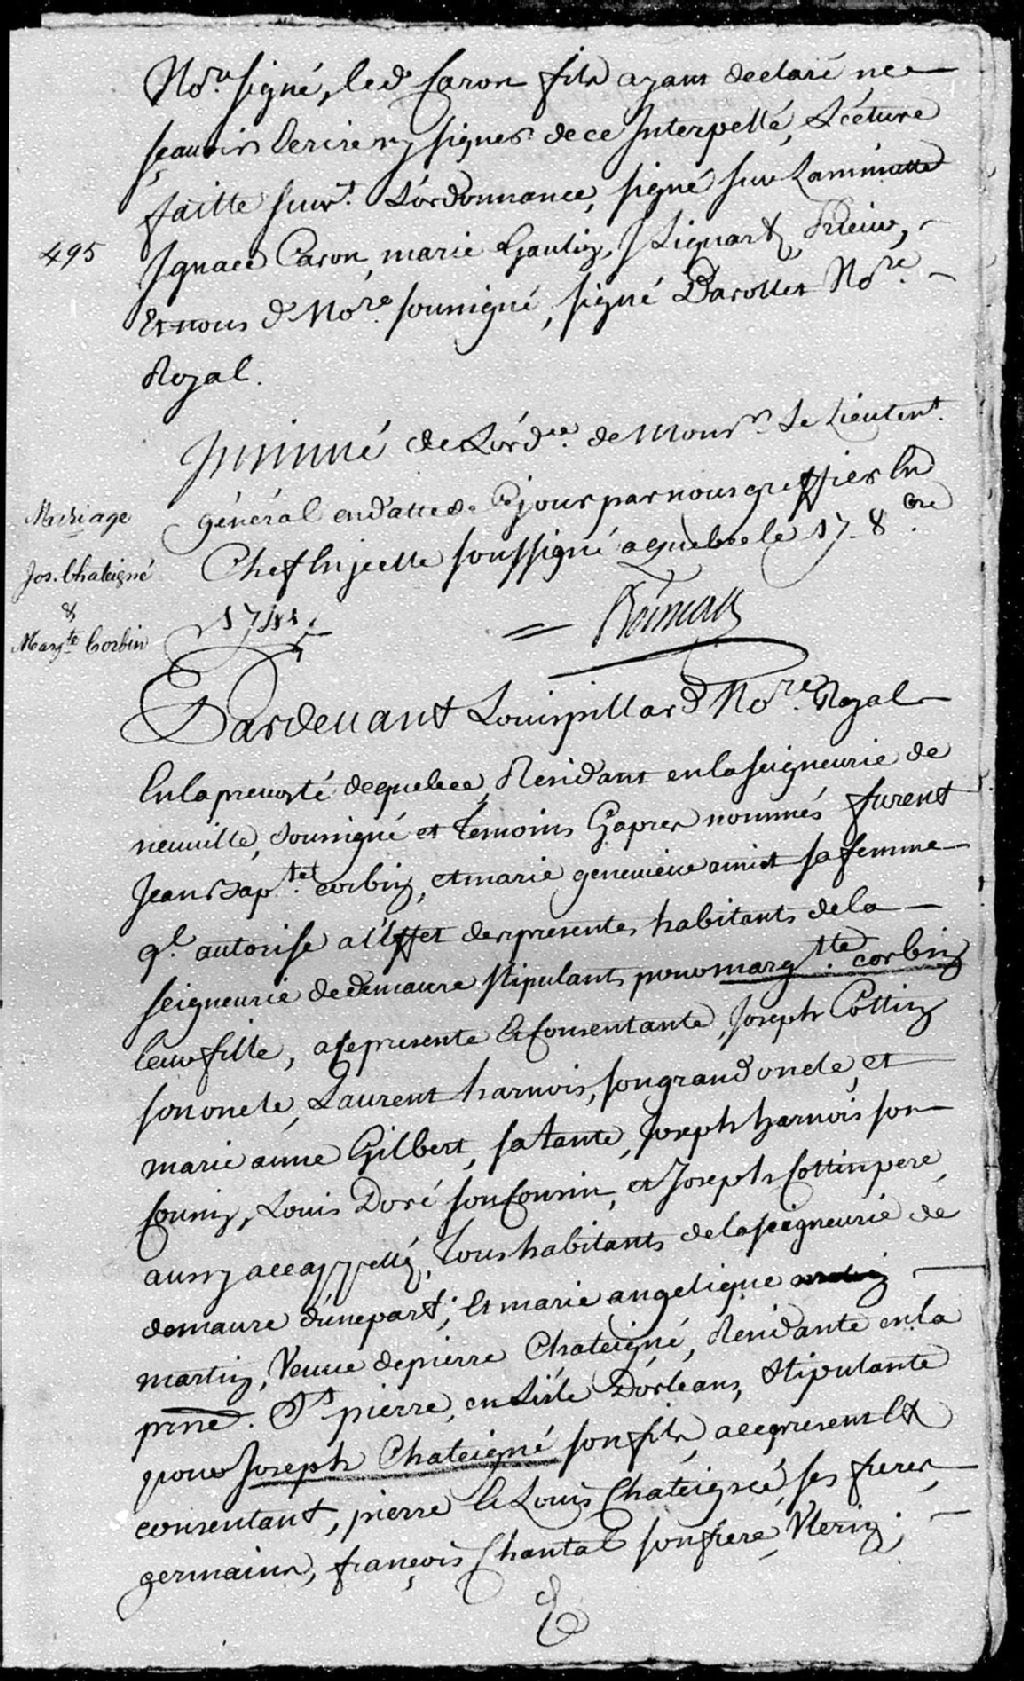 No.re signé, led. Caron fils ayant declaré ne
sçauoir Ecrire ny signer de ce Interpellé, Lecture
faitte suiv.t L'ordonnance, signé sur La minutte
495
Ignace Caron, marie Gautier, J
Et nous d. No.re soussigné, signé Barollet No.re
Royal.
Insinué de L'ord.ce de Mons.r Le Lieuten.t
général en datte de Ce jour par nous greffier En
Chef Enjcelle soussigné a quebec le 17. 8.bre
1741.
Mariage
Jos. Chateigné
&
Marg.te Corbin
Boisseau
Pardeuant Louis pillard No.re Royal
En la preuosté de quebec, Residant en la seigneurie de
neuuille, soussigné et temoins Cy apres nommés furent
Jean Bap.te corbin, et marie geneuieue sa femme
q.l autorise a l'Effet des presentes habitants de la
seigneurie de demaure stipulants pour marg.tte corbin
leur fille, a ce presente & Consentante, Joseph Cottin
son oncle, Laurent harnois, son grand oncle, et
marie anne Gilbert, sa tante, Joseph harnois son
Cousin, Louis Doré son Cousin, et Joseph Cottin pere,
aussy a ce appellé, tous habitants de la seigneurie de
demaure d'une part; Et marie angelique
martin, Veuue de pierre Chateigné, Residante en la
p.sse S.t pierre, en L'isle Dorleans, stipulante
pour Joseph Chateigné son fils, a ce present &
consentant, pierre & Louis Chateigné, ses freres
germains, françois Chantal son frere Vterin;